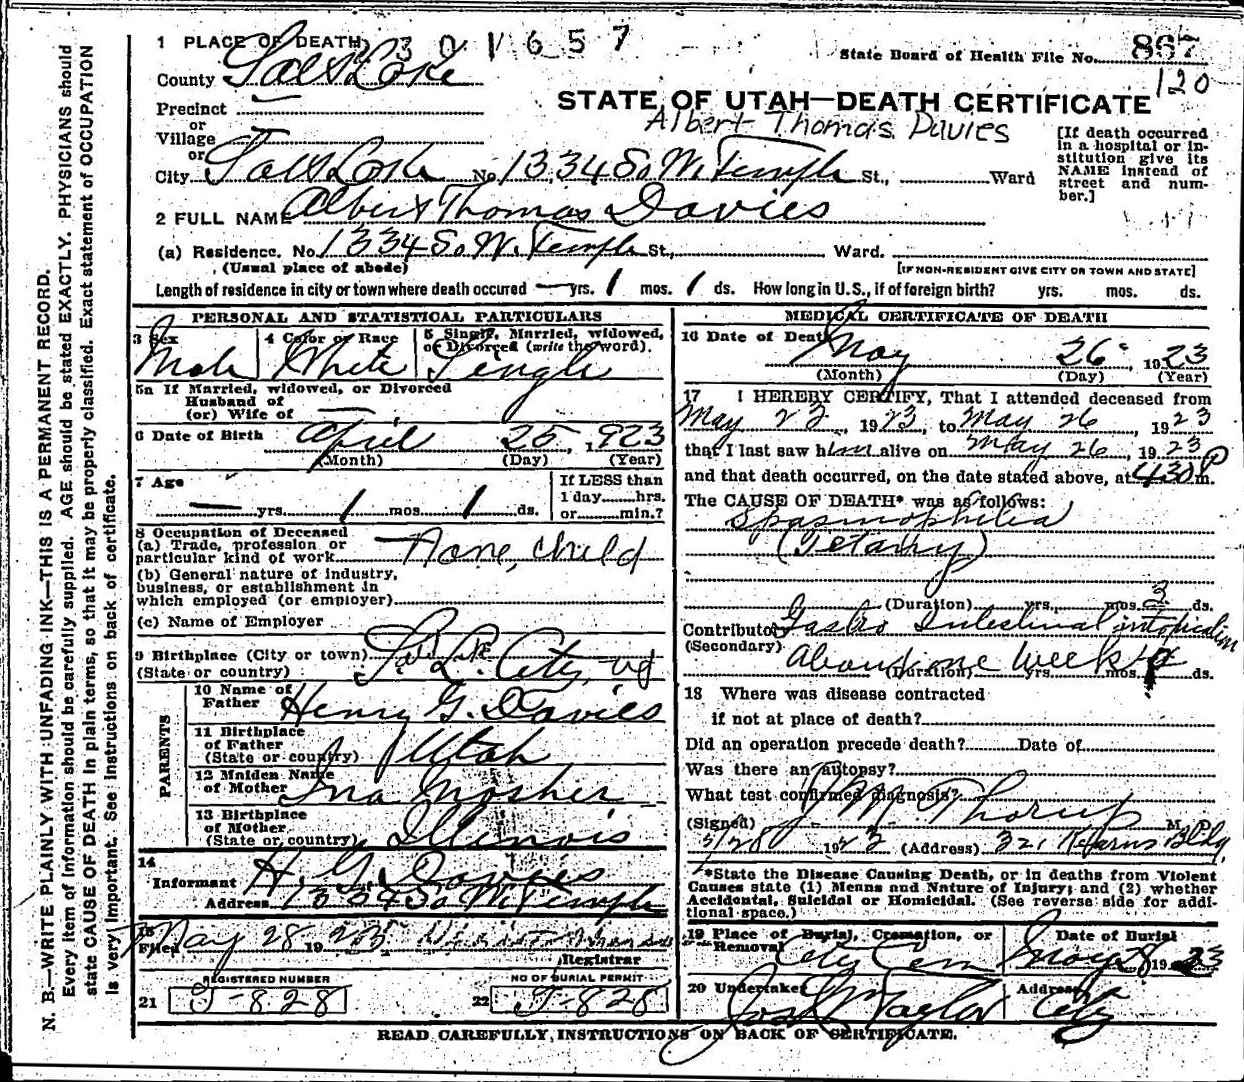 N. B.—WRITE PLAINLY WITH UNFADING INK—THIS IS A PERMANENT RECORD.
Every item of information should be carefully supplied. AGE should be stated EXACTLY. PHYSICIANS should
state CAUSE OF DEATH in plain terms, so that it may be properly classified. Exact statement of OCCUPATION
is very important. See instructions on back of certificate.
1 PLACE OF DEATH 301657
State Board of Health File No. 867
120
County Salt Lake
STATE OF UTAH—DEATH CERTIFICATE
Albert Thomas Davies
Precinct
or
Village
or
City Salt Lake No. 1334 So W. Temple St., Ward
[If death occurred in a hospital or institution give its NAME instead of street and number.]
2 FULL NAME Albert Thomas Davies
(a) Residence. No. 1334 So W. Temple St., Ward.
(Usual place of abode)
[IF NON-RESIDENT GIVE CITY OR TOWN AND STATE]
Length of residence in city or town where death occured — yrs. 1 mos. 1 ds. How long in U.S., if of foreign birth? yrs. mos. ds.
PERSONAL AND STATISTICAL PARTICULARS
3 Sex 4 Color or Race 5 Single, Married, widowed, or Divorced (write the word).
Male White Single
5a If Married, widowed, or Divorced
Husband of
(or) Wife of —
6 Date of Birth April 25, 1923
(Month) (Day) (Year)
7 Age If LESS than
1 day hrs.
— yrs. 1 mos. 1 ds. or min.?
8 Occupation of Deceased
(a) Trade, profession or
particular kind of work None, child
(b) General nature of industry,
business, or establishment in
which employed (or employer)
(c) Name of Employer
9 Birthplace (City or town) S. L. City,
(State or country)
PARENTS
10 Name of Father Henry G. Davies
11 Birthplace of Father (State or country) Utah
12 Maiden Name of Mother Ina Mosher
13 Birthplace of Mother (State or country) Illinois
14 Informant H. G. Davies
Address 1334 So W. Temple
15 Filed May 28 1923
Registrar
REGISTERED NUMBER NO OF BURIAL PERMIT
21 J-828 22 J-828
MEDICAL CERTIFICATE OF DEATH
16 Date of Death May 26 1923
(Month) (Day) (Year)
17 I HEREBY CERTIFY, That I attended deceased from
May 23, 1923, to May 26 1923
that I last saw him alive on May 26, 1923
and that death occurred, on the date stated above, at 430 P m.
The CAUSE OF DEATH* was as follows:
Spasmophilia
(Tetany)
(Duration) yrs. mos. 3 ds.
Contributory Gastro Intestinal intoxication
(Secondary) About one week
(Duration) yrs. mos. ds.
18 Where was disease contracted
if not at place of death?
Did an operation precede death? Date of
Was there an autopsy?
What test confirmed diagnosis?
(Signed) Thorup M. D.
5/28 1923 (Address) 321 Kearns Bldg.
*State the Disease Causing Death, or in deaths from Violent
Causes state (1) Means and Nature of Injury; and (2) whether
Accidental, Suicidal or Homicidal. (See reverse side for additional space.)
19 Place of Burial, Cremation, or Removal Date of Burial
City Cem May 28 1923
20 Undertaker Address
Jos Wm Taylor City
READ CAREFULLY INSTRUCTIONS ON BACK OF CERTIFICATE.